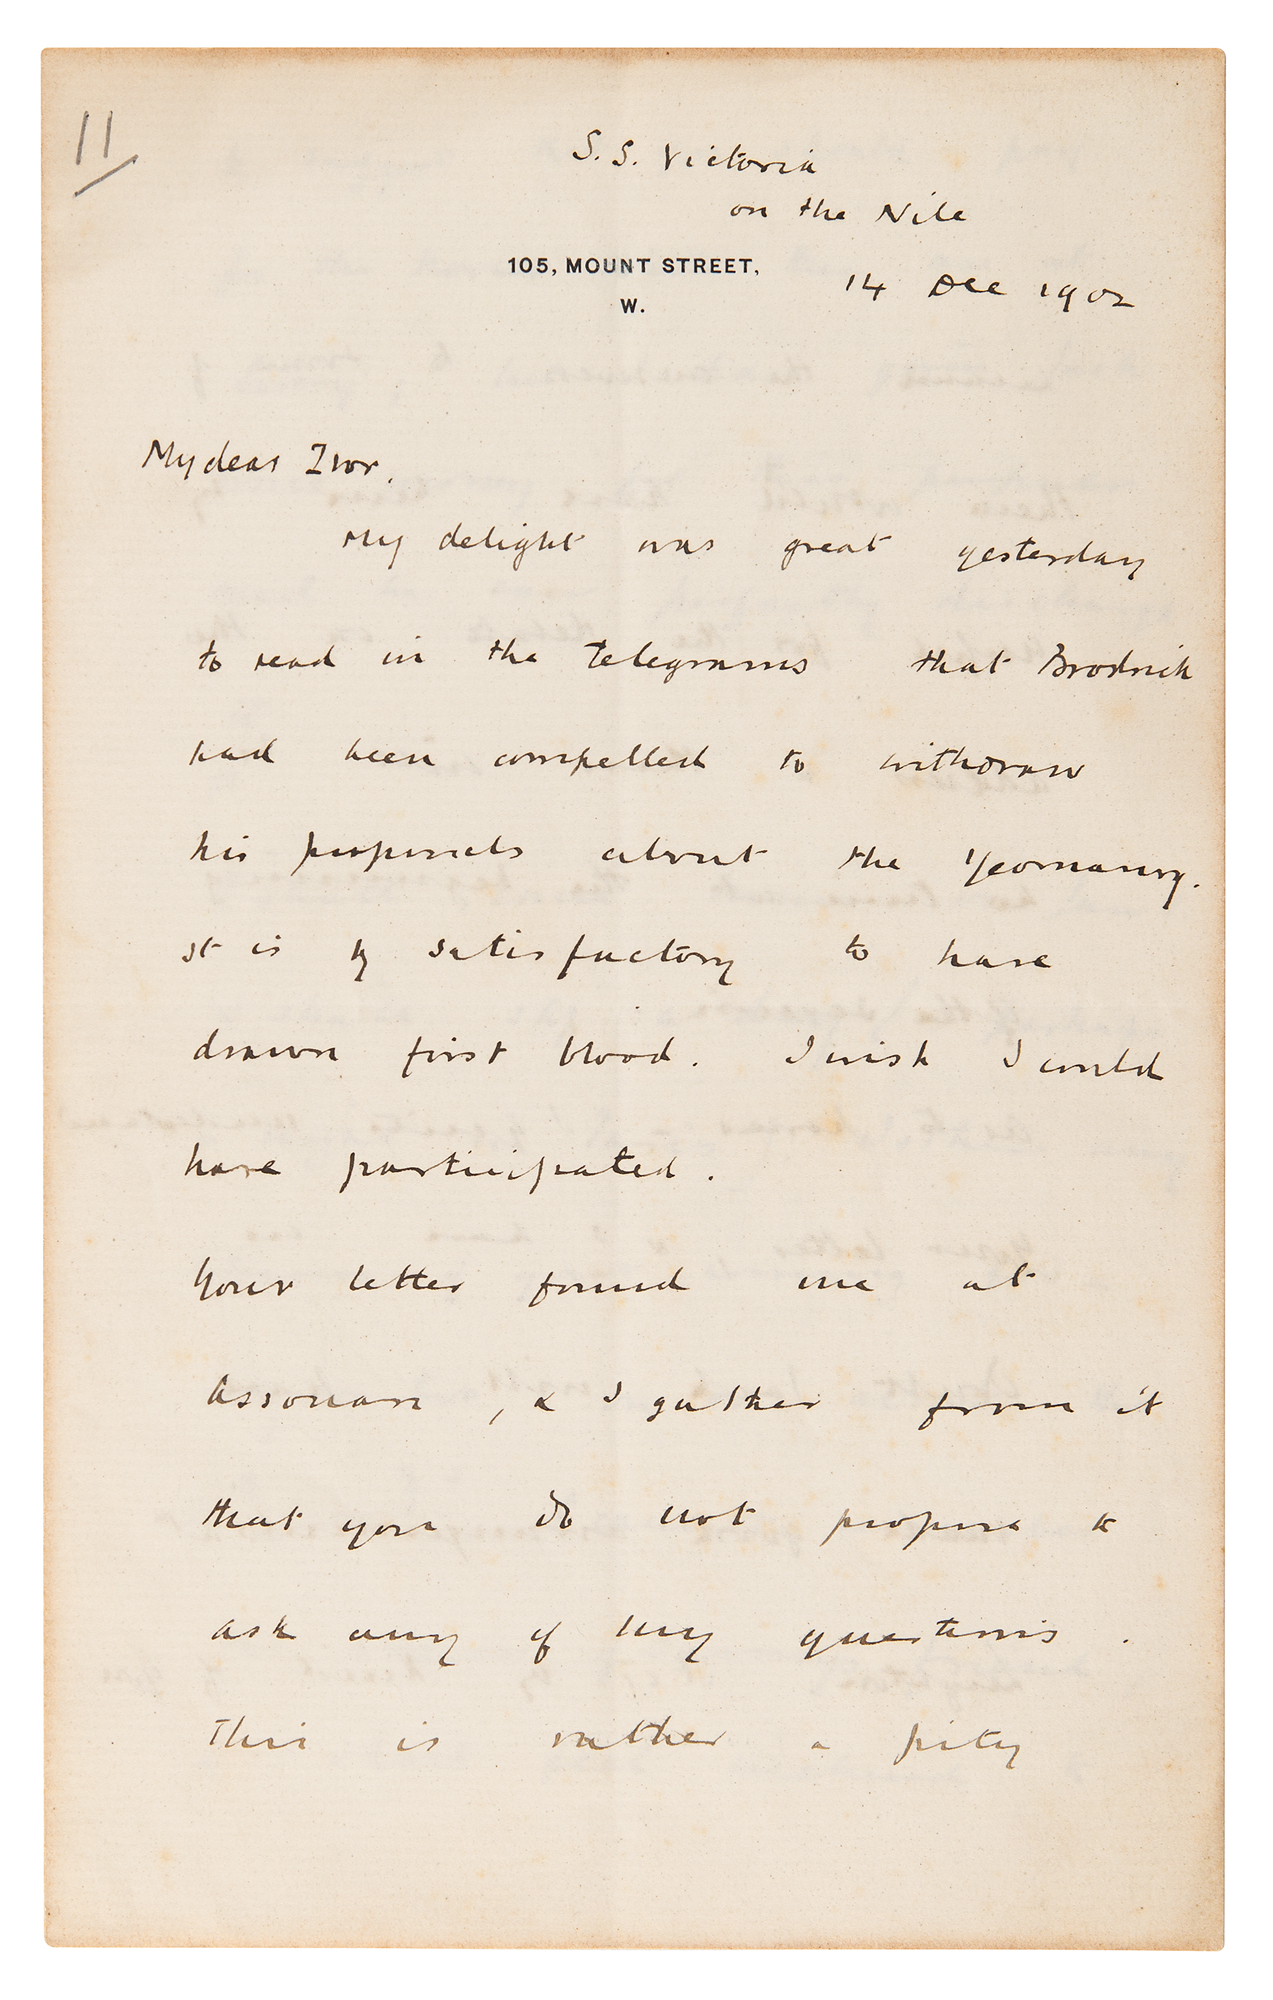 11
S.S. Victoria
on the Nile
105, MOUNT STREET,
W.
14 Dec 1902
My dear Ivor,
My delight was great yesterday
to read in the telegrams that Brodrick
had been compelled to withdraw
his proposals about the Yeomanry.
It is satisfactory to have
drawn first blood. I wish I could
have participated.
Your letter found me at
Assouan, & I gather from it
that you do not propose to
ask any of my questions.
This is rather a pity